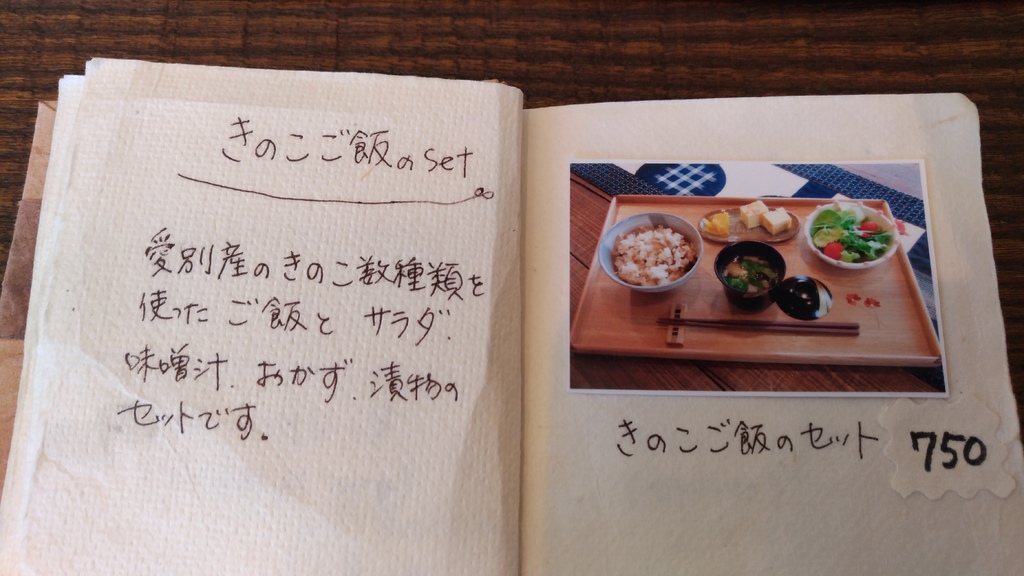 きのこご飯のset
愛別産のきのこ数種類を
使ったご飯と サラダ、
味噌汁、おかず、漬物の
セットです。
きのこご飯のセット
750